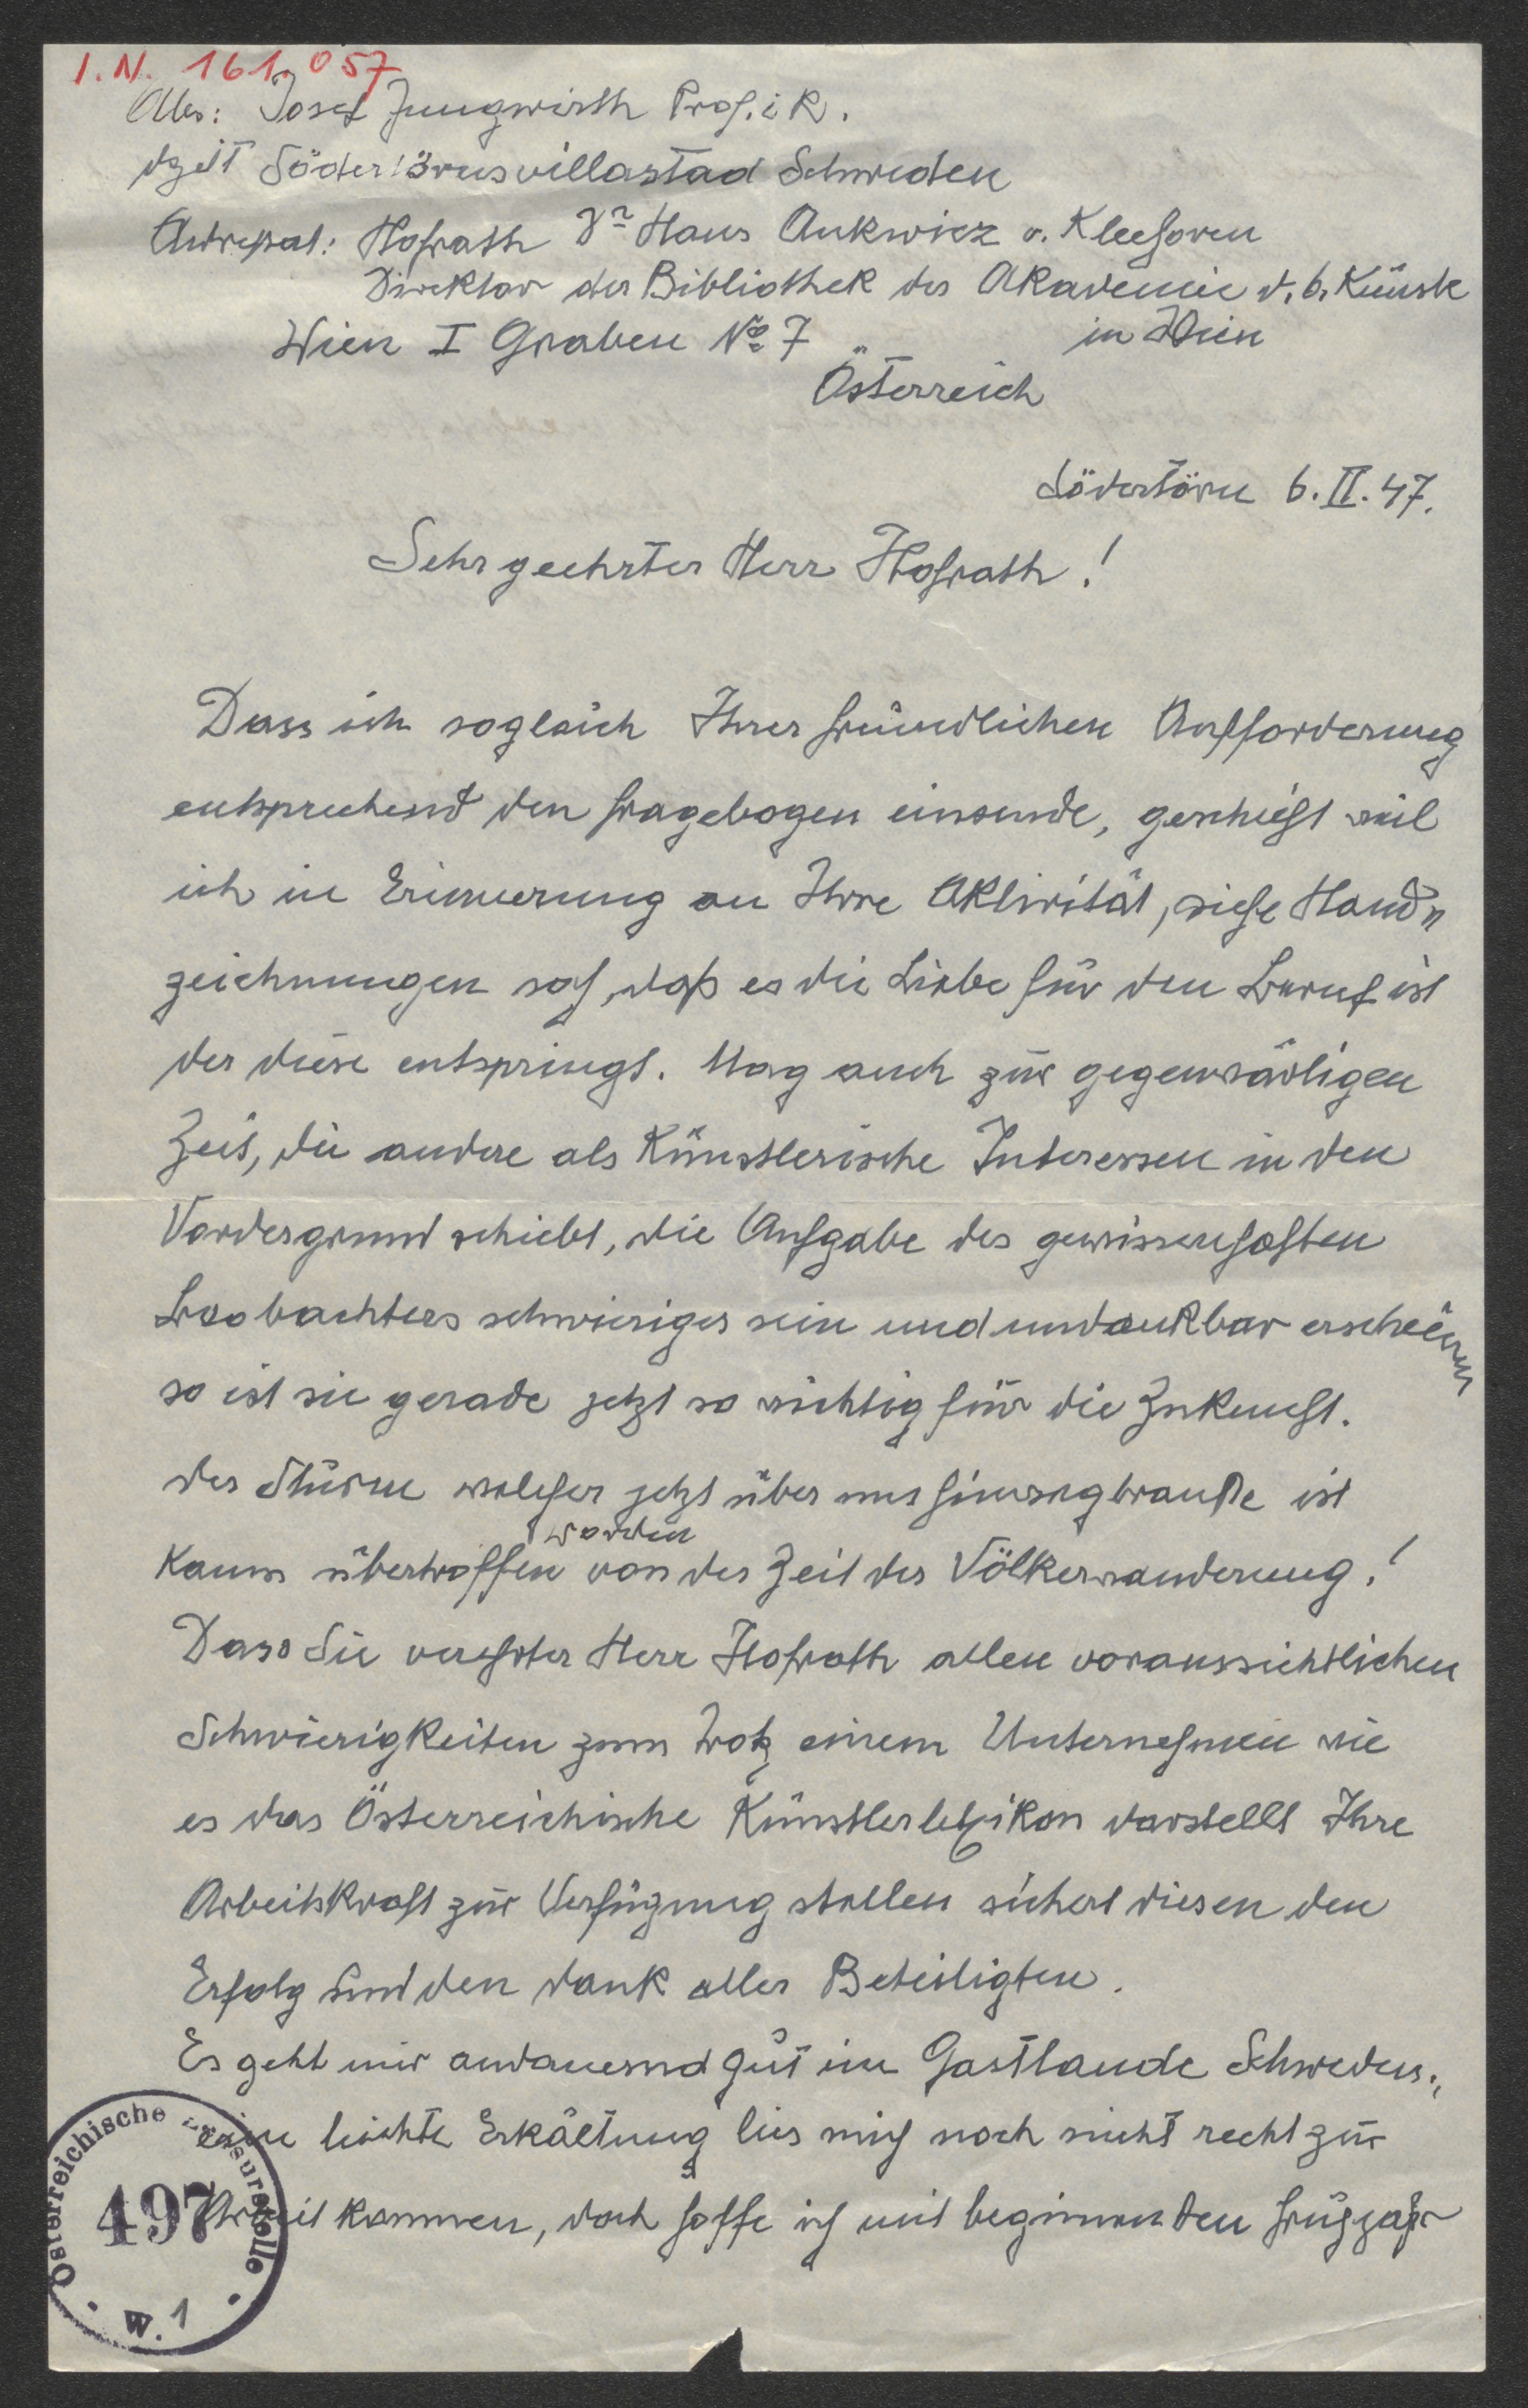 I.N. 161.057
Abs: Josef Jungwirth Prof. i R.
dzeit Södertörnsvillastad Schweden
Adressat: Hofrath Dr Hans Ankwicz v. Kleehoven
Direktor der Bibliothek der Akademie d. b. Künste
in Wien
Wien I Graben No 7
Österreich
Södertörn 6.II.47.
Sehr geehrter Herr Hofrath!
Dass ich sogleich Ihrer freundlichen Aufforderung
entsprechend den Fragebogen einsende, geschieht weil
ich in Erinnerung an Ihre Aktivität, siehe Hand„
zeichnungen sah, daß es die Liebe für den Beruf ist
der diese entspringt. Mag auch zur gegenwärtigen
Zeit, die andere als Künstlerische Interessen in den
Vordergrund schiebt, die Aufgabe des gewissenhaften
Beobachters schwieriger sein und undankbar erscheinen
so ist sie gerade jetzt so wichtig für die Zukunft.
der Sturm welcher jetzt über uns hinwegbrauste ist
kaum übertroffen worden von der Zeit der Völkerwanderung!
Dass Sie verehrter Herr Hofrath allen voraussichtlichen
Schwierigkeiten zum Trotz einem Unternehmen wie
es das Österreichische Künstlerlexikon darstellt Ihre
Arbeitskraft zur Verfügung stellen sichert diesen den
Erfolg und den dank aller Beteiligten.
Es geht mir andauernd gut im Gastlande Schweden.,
eine leichte Erkältung lies mich noch nicht recht zur
Arbeit kommen, doch hoffe ich mit beginnenden Frühjahr
Österreichische Zensurstelle
497
W. 1